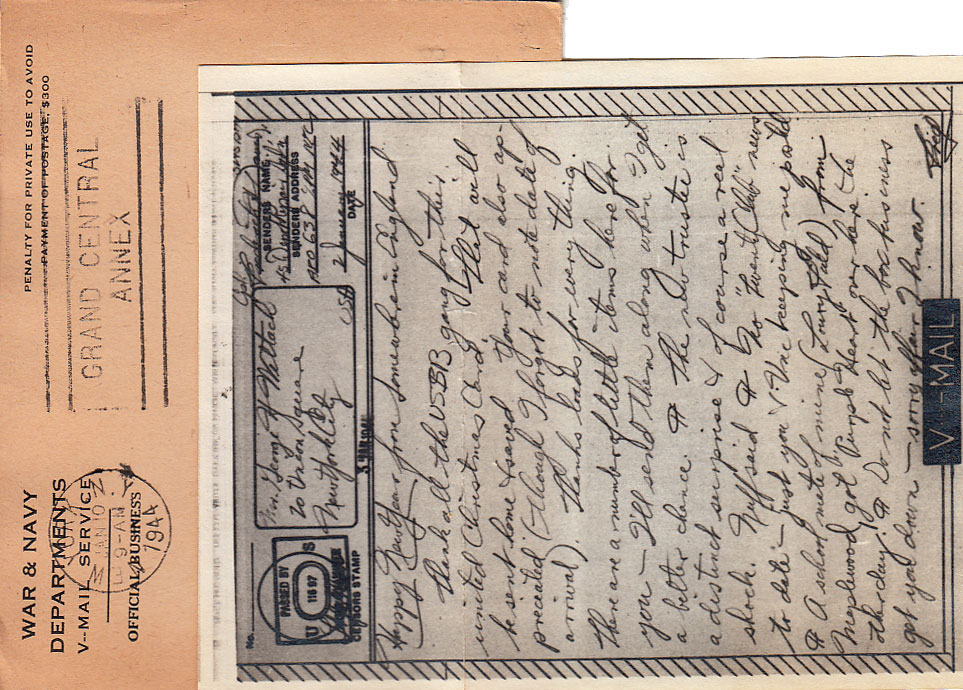 WAR & NAVY
DEPARTMENTS
V--MAIL SERVICE
OFFICIAL BUSINESS
PENALTY FOR PRIVATE USE TO AVOID
PAYMENT OF POSTAGE, $300
JAN 10
9-AM
1944
GRAND CENTRAL
ANNEX
No.
PASSED BY
U S
CENSOR'S STAMP
Mr. George
20 Union Square
New York City
USA
SENDER'S NAME
SENDER'S ADDRESS
2 January 1944
DATE
Happy New Year from Somewhere in England
Thank all the USBB gang for this
united Christmas card that will
be sent home & saved. Your card also ap-
preciated (although I forgot to note date of
arrival). Thanks loads for every thing.
There are a number of little items here for
you — I'll send them along when I get
a better chance. ¶ The new trustee is
a distinct surprise & of course a real
shock. Nuff said. ¶ No "Twenty Club" news
to date — just you & Vane keeping me posted
¶ A school mate of mine from
Maplewood got his Purple Heart over here the
other day. ¶ Do not let the box business
get you down — sorry affair I know.
V--MAIL